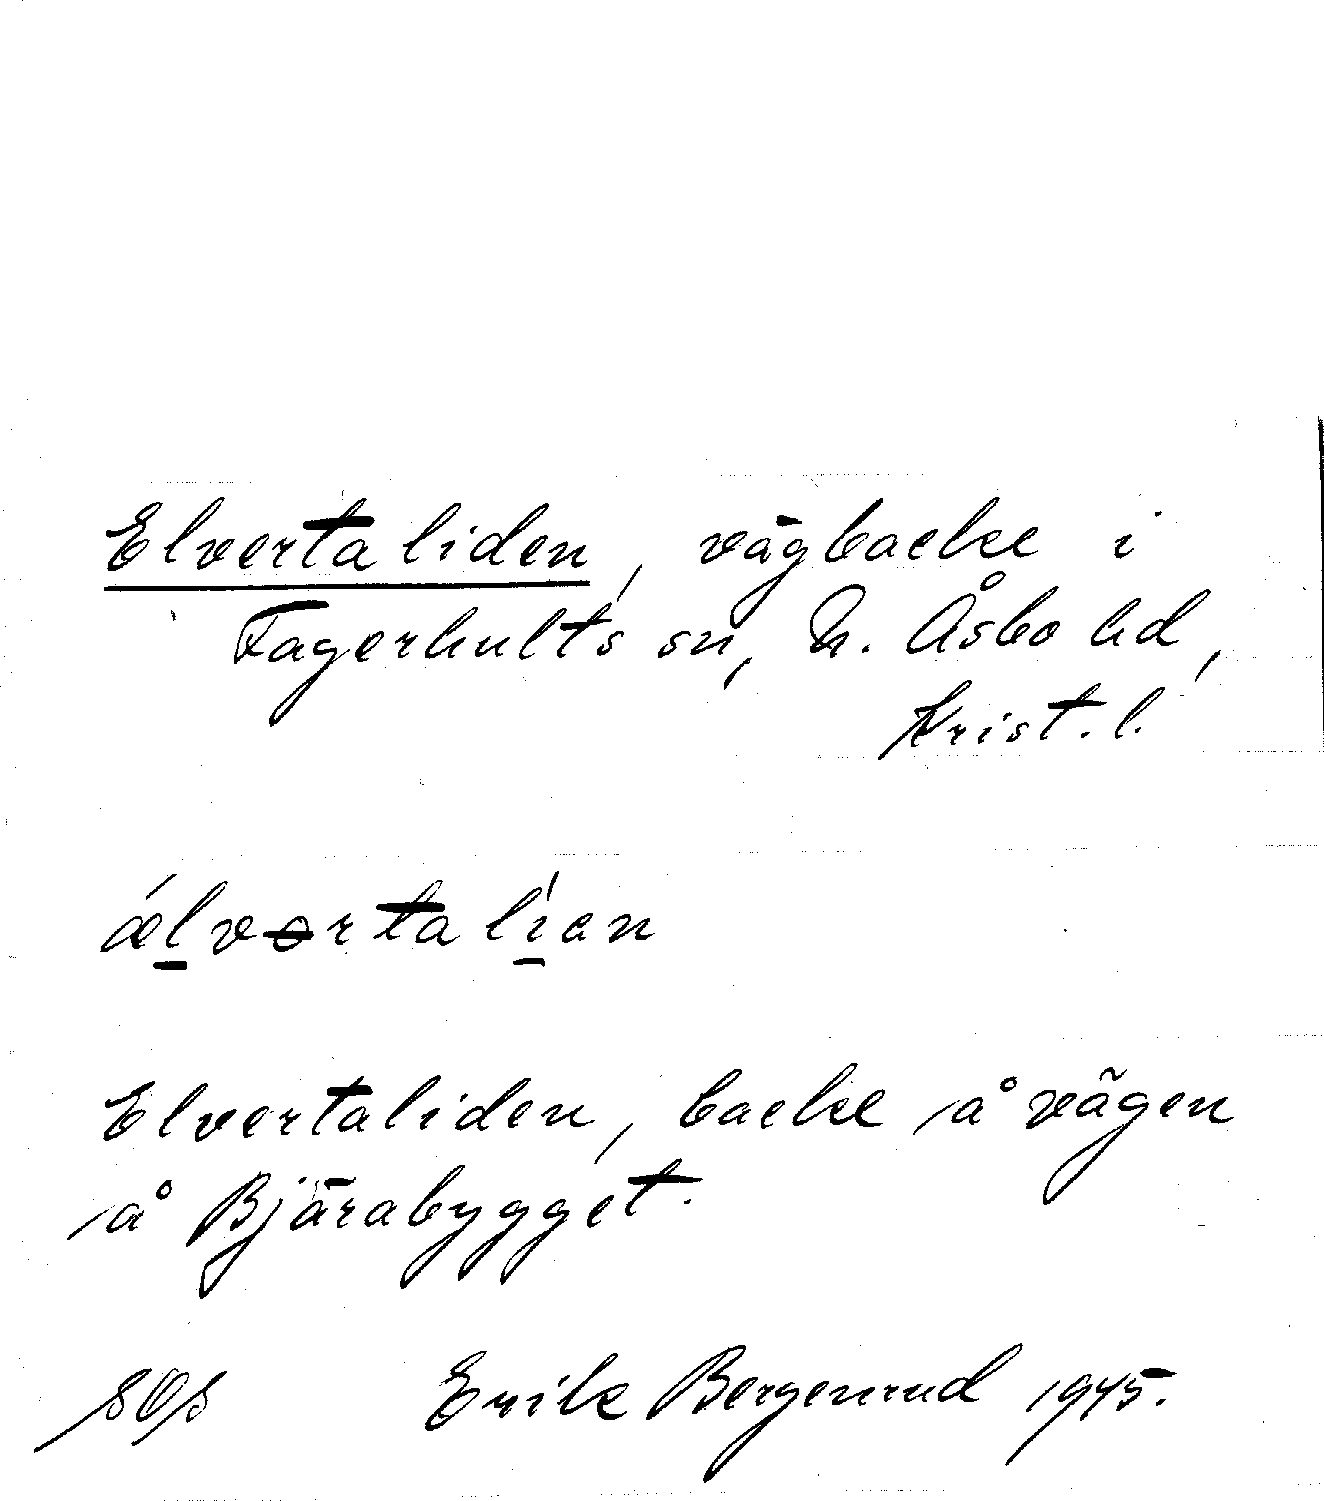 Elvertaliden, vägbacke i
Fagerhults sn, N. Åsbo hd,
Krist. l.
ǽl̲vɵrtalí̲an
Elvertaliden, backe å vägen
å Bjärabygget.
SOS Erik Bergenrud 1945.